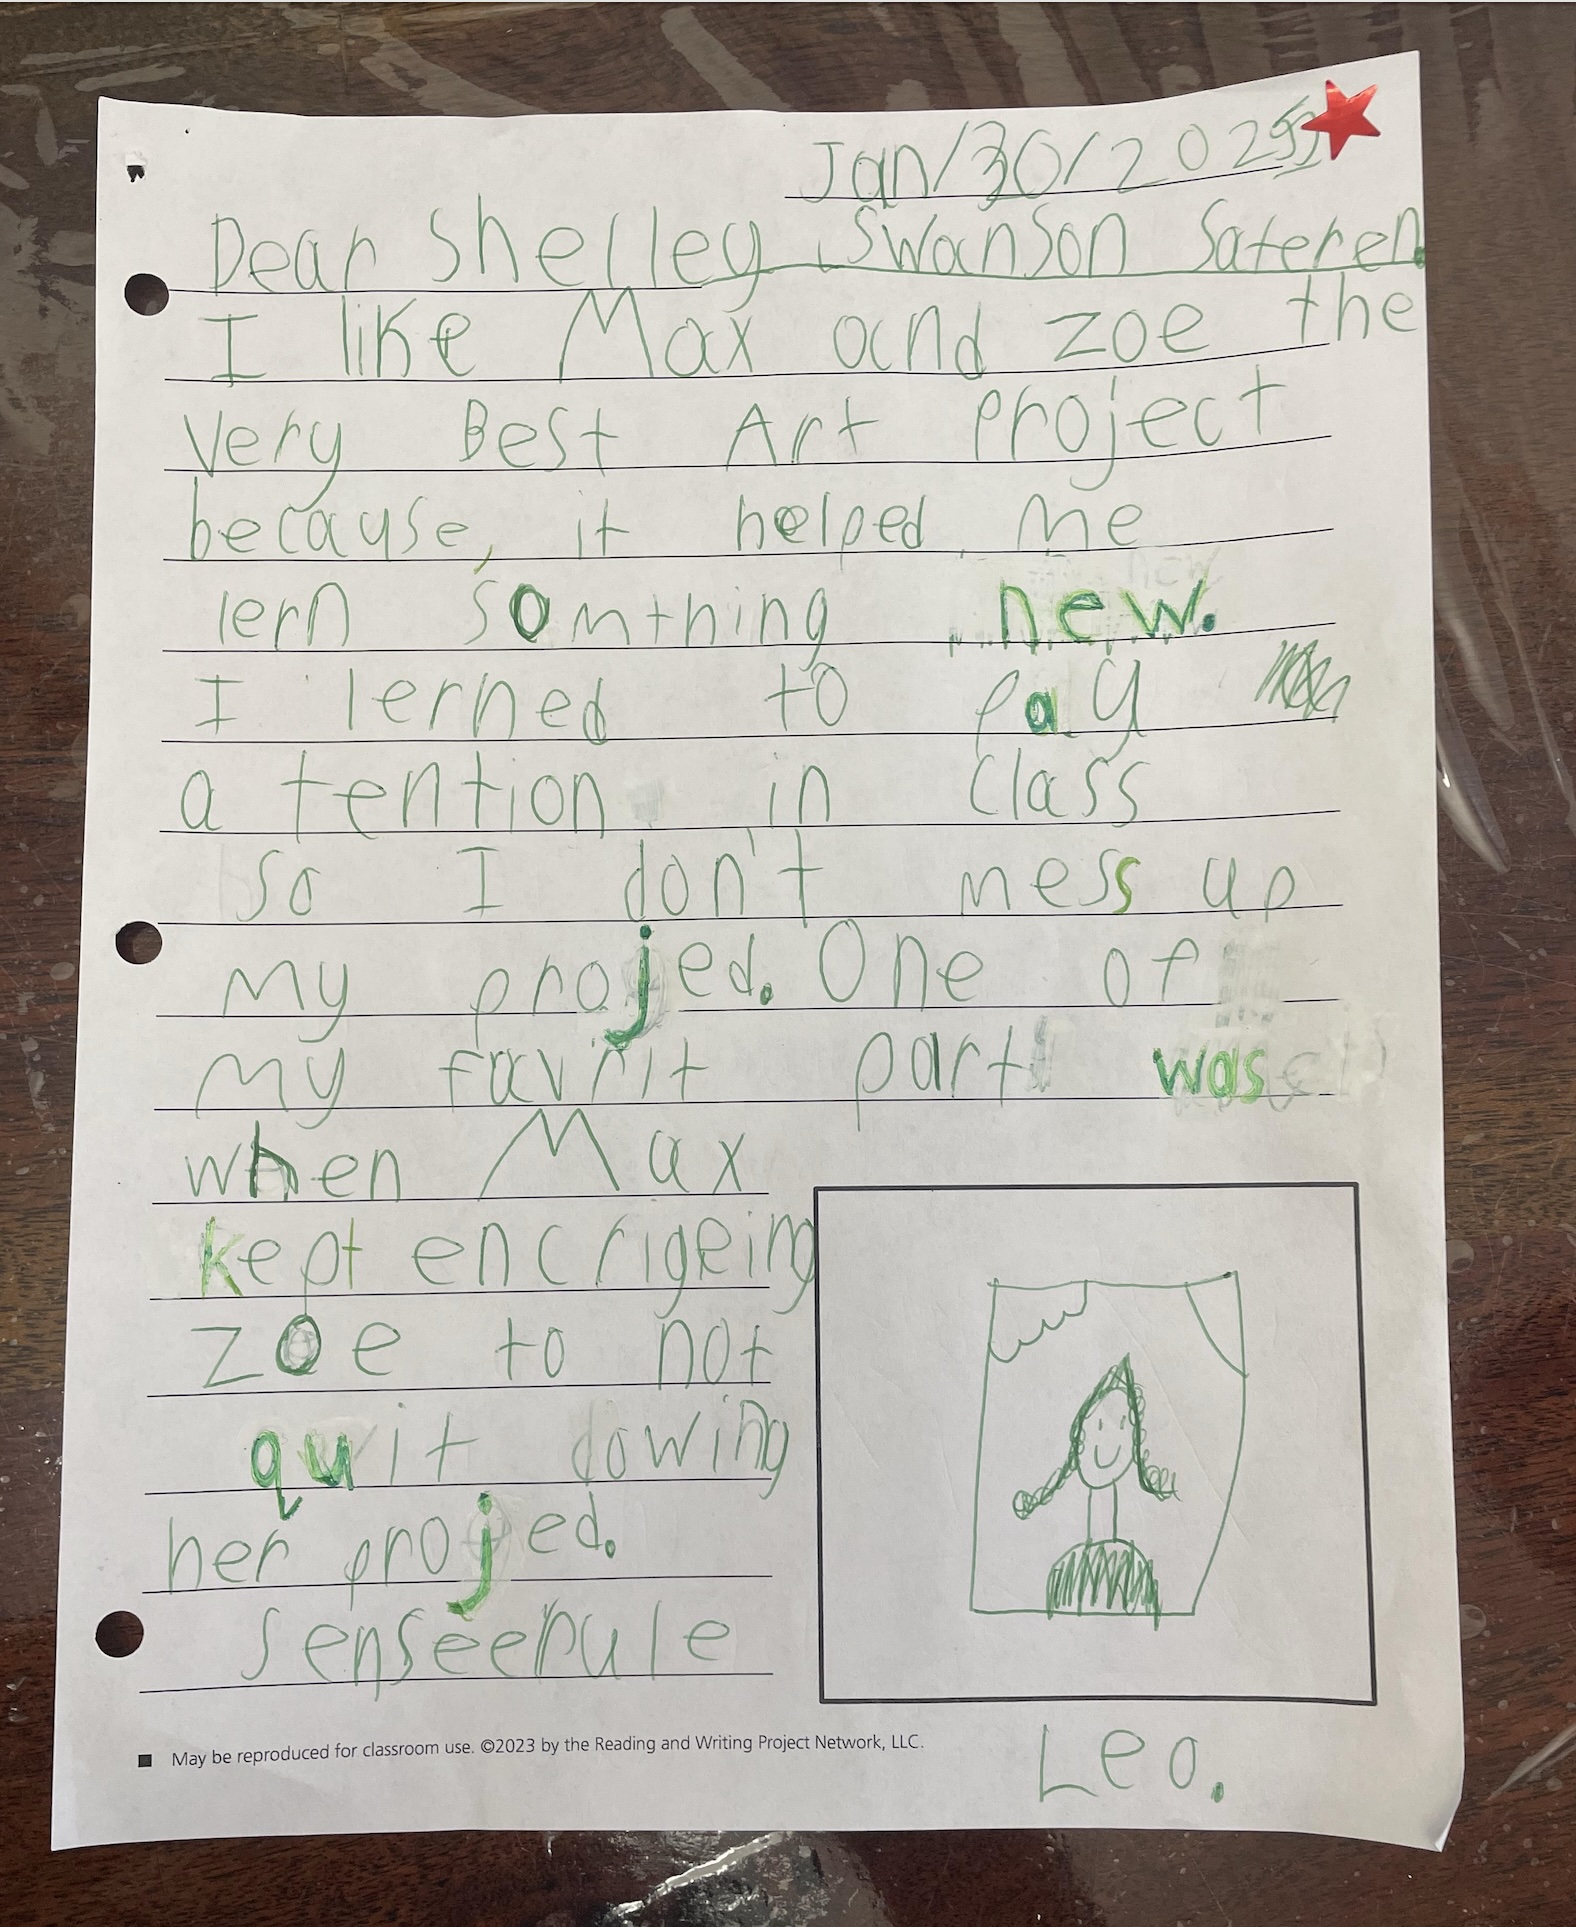 Jan/30/2025
Dear Shelley Swanson Sateren.
I like Max and zoe the
Very Best Art Project
because, it helped me
lern somthing new.
I lerned to pay
a tention in class
so I don't mess up
my projed. One of
my favrit part was
when Max
kept encrigeing
zoe to not
quit dowing
her projed.
senseerule
Leo.
■ May be reproduced for classroom use. ©2023 by the Reading and Writing Project Network, LLC.